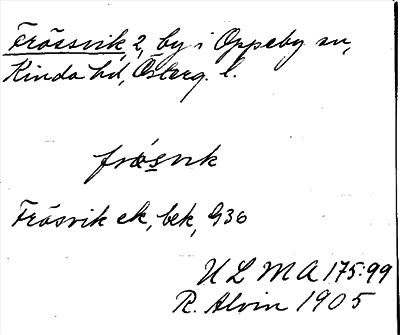 Frössvik, 2, by i Oppeby sn,
Kinda hd, Österg. l.
frøsvik
Frösvik ek, bek, G36
ULMA 175:99
R. Alvin 1905